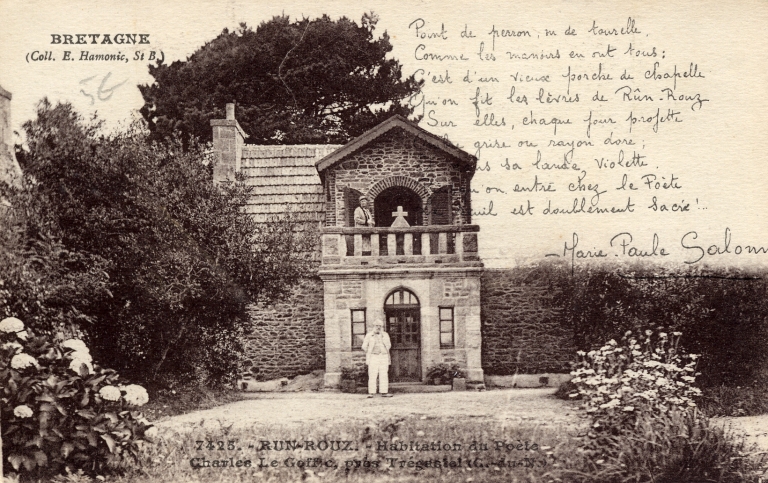 BRETAGNE
(Coll. E. Hamonic, St B.)
5€
Point de perron, ni de tourelle,
Comme les manoirs en ont tous;
C'est d'un vieux porche de chapelle
Qu'on fit les lèvres de Rûn-Rouz
Sur elles, chaque jour projette
grise ou rayon doré,
sa lande violette.
on entre chez le Poète
euil est doublement sacré!..
Marie Paule Salonn
7425. - RUN-ROUZ. - Habitation du Poète
Charles Le Goffic, près Trégastel (C.-du-N.)